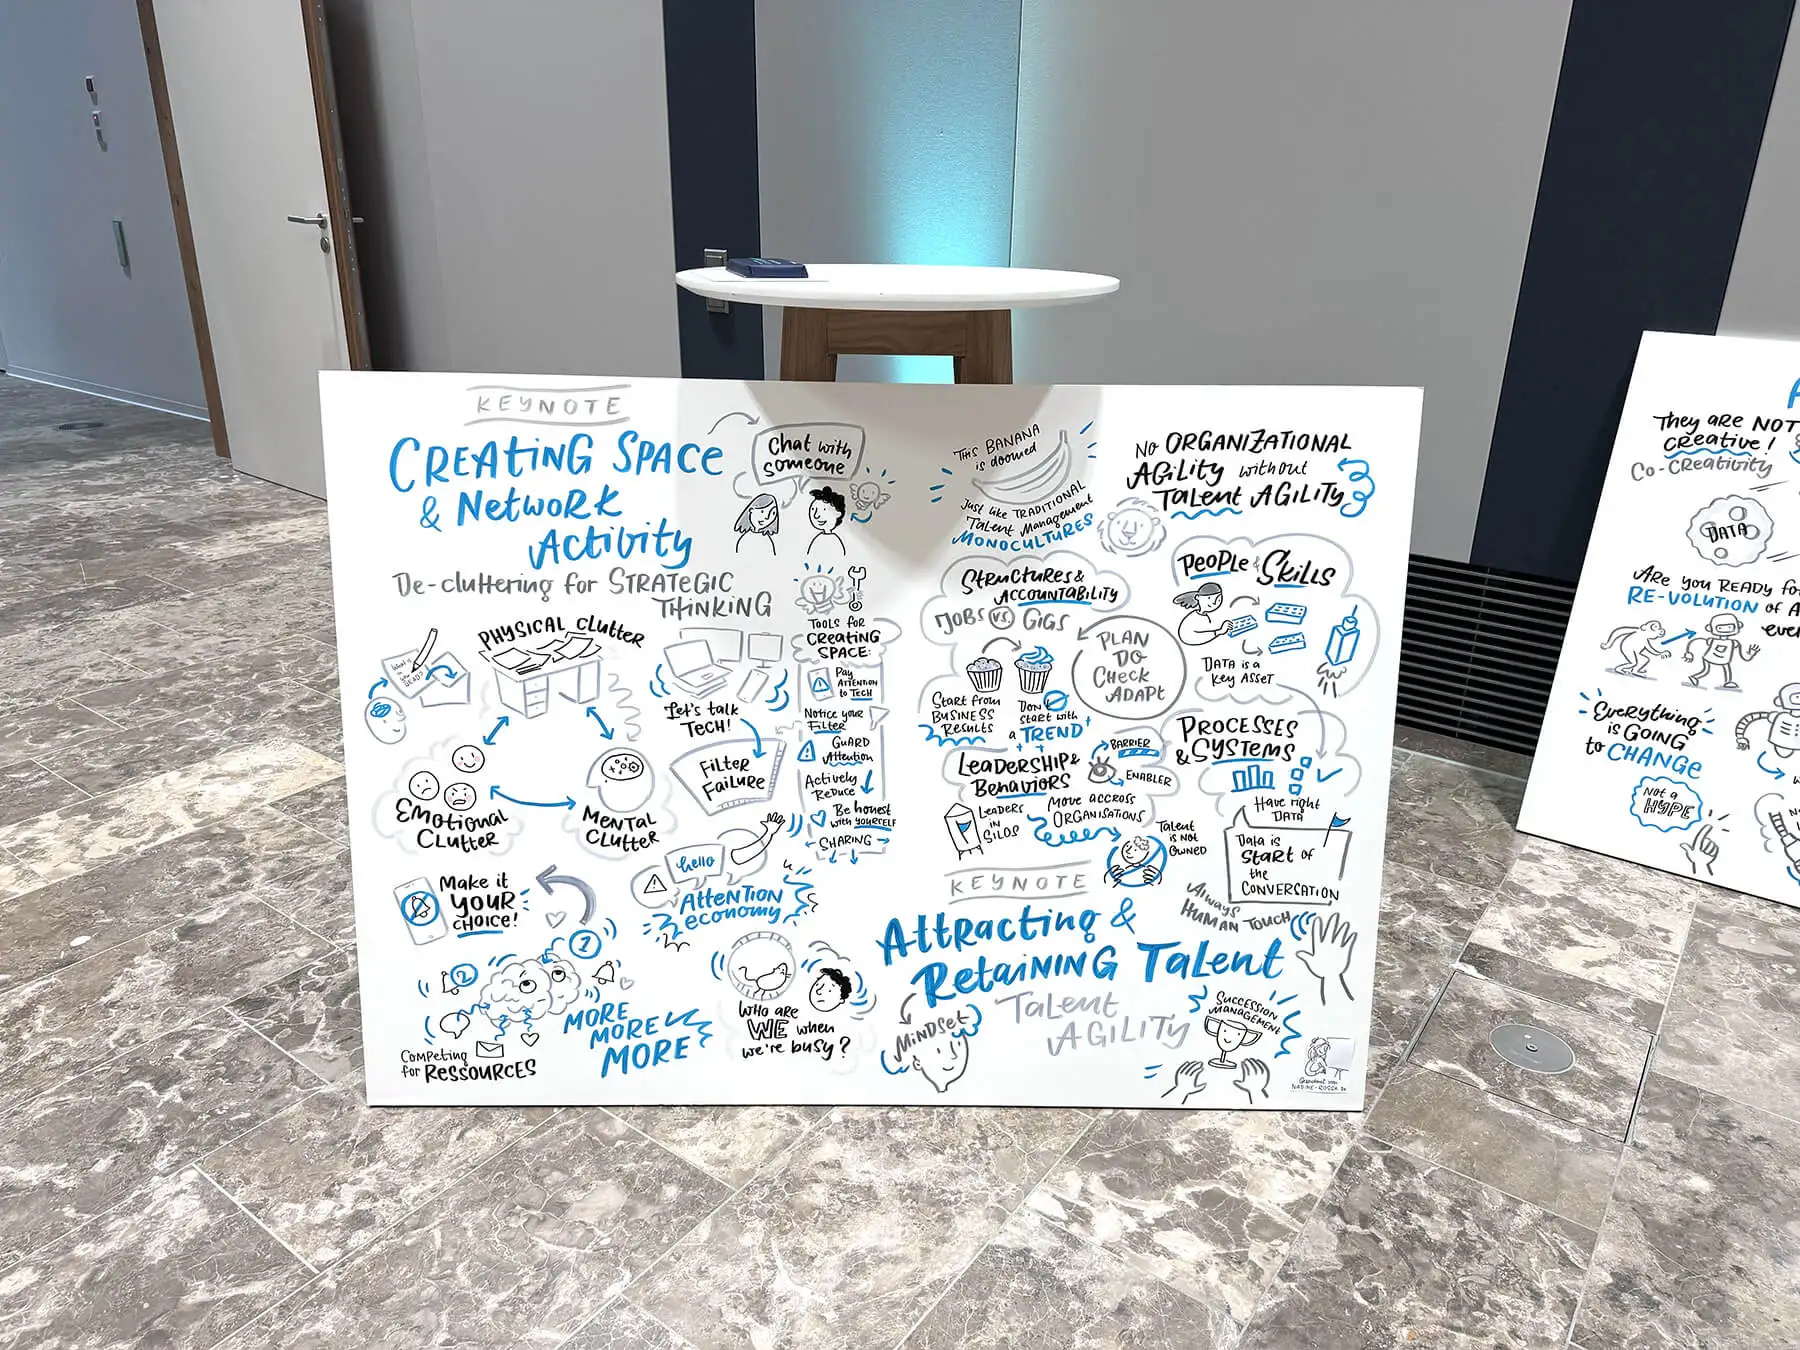 KEYNOTE
CREATING SPACE
& NETWORK
ACTIVITY
De-cluttering for STRATEGIC
THINKING
Chat with
someone
PHYSICAL CLUTTER
EMOTIONAL
CLUTTER
MENTAL
CLUTTER
Let's talk
TECH!
FILTER
FAILURE
TOOLS FOR
CREATING
SPACE:
PAY
ATTENTION
to TECH
Notice your
Filter
GUARD
Attention
Actively
REDUCE
Be honest
with YOURSELF
SHARING
hello
ATTENTION
economy
Make it
YOUR
CHOICE!
1
2
MORE
MORE
MORE
COMPETING
for RESSOURCES
WHO ARE
WE when
we're busy?
THIS BANANA
is doomed
Just like TRADITIONAL
Talent Management
MONOCULTURES
NO ORGANIZATIONAL
AGILITY without
Talent AGILITY
STRUCTURES &
ACCOUNTABILITY
JOBS VS. GIGS
PLAN
DO
CHECK
ADAPT
Start from
BUSINESS
RESULTS
DON'T
start with
a TREND
PEOPLE & SKILLS
DATA is a
KEY ASSET
PROCESSES
& SYSTEMS
Have right
DATA
Data is
START of
the
CONVERSATION
Always
HUMAN TOUCH
LEADERSHIP &
Behaviors
BARRIER
ENABLER
LEADERS
IN
SILOS
Move accross
ORGANISATIONS
Talent
is not
OWNED
KEYNOTE
Attracting &
RetaiNING Talent
Talent
AGILITY
MINDSET
SUCCESSION
MANAGEMENT
Gezeichnet von
NADINE-ROSSA.DE
They are NOT
creative!
Co-CREATIVITY
DATA
Are you READY fo
RE-VOLUTION of A
ever
Everything
is GOING
to CHANGE
Not a
HYPE